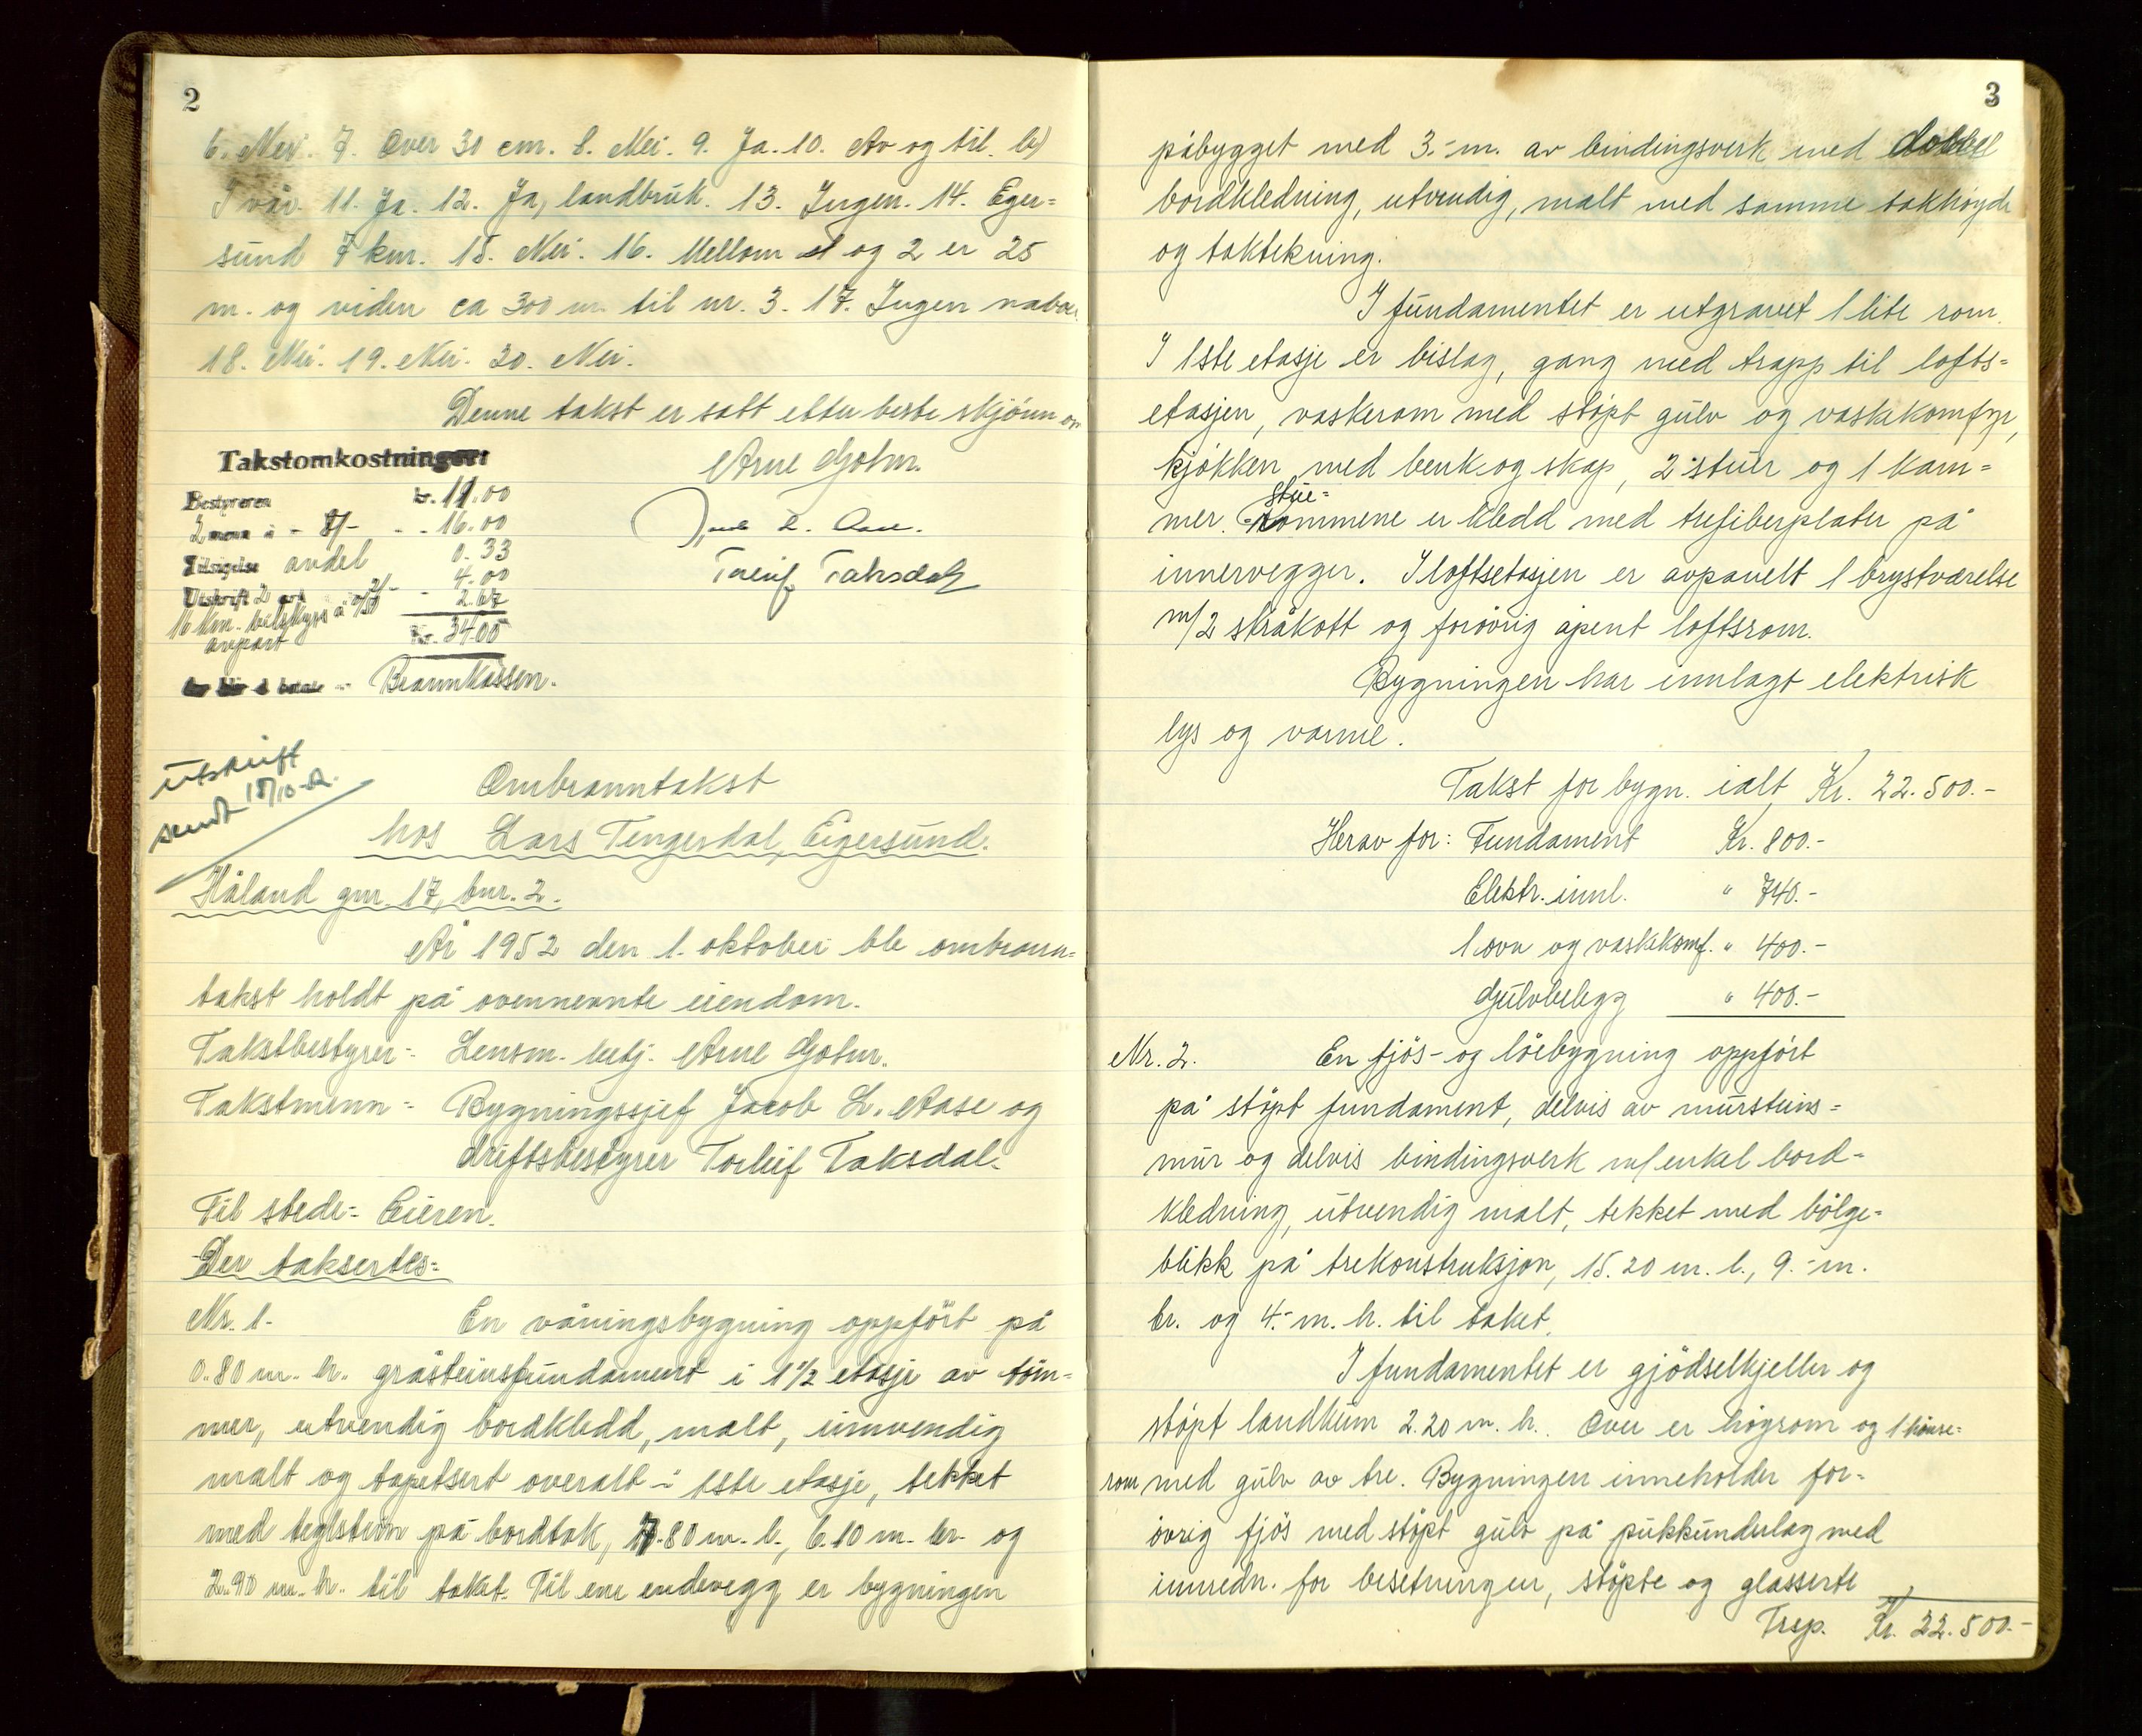 2
6. Nei. 7. Over 30 cm. 8. Nei. 9. Ja. 10. Av og til. b)
I vår. 11. Ja. 12. Ja, landbruk. 13. Ingen. 14. Eger=
sund 7 km. 15. Nei. 16. Mellom 1 og 2 er 25
m. og viden ca 300 m. til nr. 3. 17. Ingen naboer.
18. Nei. 19. Nei. 20. Nei.
Denne takst er satt etter beste skjønn og
Takstomkostninger:
Bestyreren kr. 11.00
2 menn à - 8/- - - 16.00
Tilsigelse andel 0.33
Utskrift 2 ark 2/- - 4.00
16 km. bilskyss à 2.67
anpart
Kr. 34.00
Brannkassen.
Arne Gohn.
Torleif Taksdal
Utskrift
sendt 18/10-52.
Ombranntakst
hos Lars Tengesdal, Eigersund.
Håland gnr. 17, bnr. 2.
År 1952 den 1. oktober ble ombrann=
takst holdt på ovennevnte eiendom.
Takstbestyrer=: Lensm. betj. Arne Gohn.
Takstmenn=: Bygningssjef Jacob L. Aase og
driftsbestyrer Torleif Taksdal.
Til stede=: Eieren.
Der taksertes=:
Nr. 1. En våningsbygning oppført på
0.80 m. h. gråsteinsfundament i 1 1/2 etasje av tøm=
mer, utvendig bordkledd, malt, innvendig
malt og tapetsert overalt i 1ste etasje, tekket
med teglstein på bordtak, 7.80 m. l., 6.10 m. br. og
2.90 m. h. til taket. Til ene endevegg er bygningen
3
påbygget med 3.- m. av bindingsverk med dobbel
bordkledning, utvendig, malt med samme takhøyde
og taktekning.
I fundamentet er utgravet 1 lite rom.
I 1ste etasje er bislag, gang med trapp til lofts=
etasjen, vaskerom med støpt gulv og vaskekomfyr,
kjøkken med benk og skap, 2 stuer og 1 kam=
mer. Stue=
rommene er kledd med trefiberplater på
innervegger. I loftsetasjen er avpanelt 1 brystværelse
m/2 skråkott og forøvrig åpent loftsrom.
Bygningen har innlagt elektrisk
lys og varme.
Takst for bygn. ialt Kr. 22.500.-
Herav for: Fundament Kr. 800.-
Elektr. innl. " 740.-
1 ovn og vaskekomf. " 400.-
Gulvbelegg " 400.-
Nr. 2. En fjøs- og løebygning oppført
på støpt fundament, delvis av mursteins=
mur og delvis bindingsverk m/enkel bord=
kledning, utvendig malt, tekket med bølge=
blikk på trekonstruksjon, 15.20 m. l., 9.- m.
br. og 4.- m. h. til taket.
I fundamentet er gjødselkjeller og
støpt landkum 2.20 m. h.. Over er høgrom og 1 hønse=
rom med gulv av tre. Bygningen inneholder for=
øvrig fjøs med støpt gulv på pukkunderlag med
innredn. for besetningen, støpte og glasserte
Trsp. Kr. 22.500.-